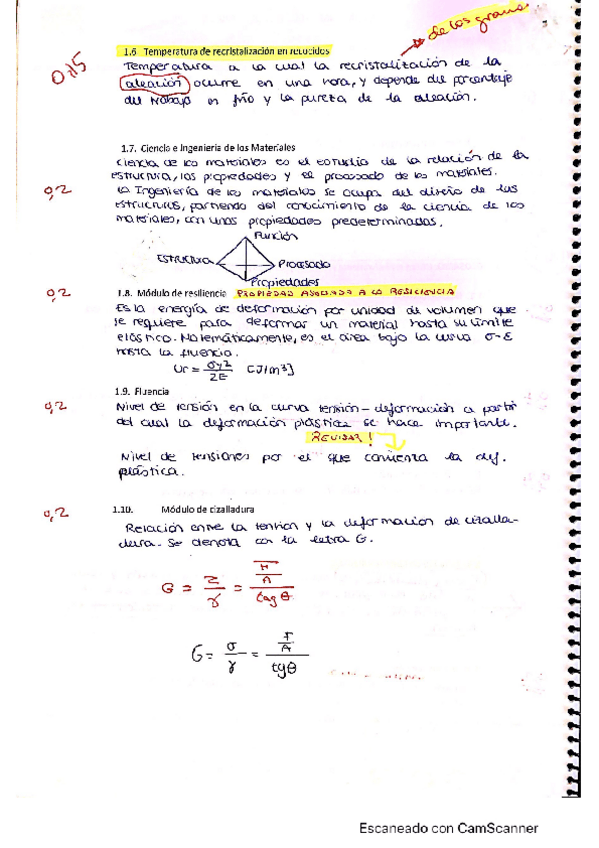 de los granos
1.6 Temperatura de recristalización en recocidos
0,15
Temperatura a la cual la recristalización de la
aleación ocurre en una hora, y depende del porcentaje
del trabajo en frío y la pureza de la aleación.
1.7. Ciencia e Ingeniería de los Materiales
Ciencia de los materiales es el estudio de la relación de la
estructura, las propiedades y el procesado de los materiales.
0,2
La Ingeniería de los materiales se ocupa del diseño de las
estructuras, partiendo del conocimiento de la ciencia de los
materiales, con unas propiedades predeterminadas.
Función
Estructura
Procesado
Propiedades
0,2
1.8. Módulo de resiliencia PROPIEDAD ASOCIADA A LA RESILIENCIA
Es la energía de deformación por unidad de volumen que
se requiere para deformar un material hasta su límite
elástico. Matemáticamente, es el área bajo la curva σ-ε
hasta la fluencia.
Ur = σy2 / 2E [J/m3]
1.9. Fluencia
0,2
Nivel de tensión en la curva tensión-deformación a partir
del cual la deformación plástica se hace importante.
REVISAR!
Nivel de tensiones por el que comienza la def.
plástica.
0,2
1.10. Módulo de cizalladura
Relación entre la tension y la deformacion de cizalla-
dura. Se denota con la letra G.
G = τ / γ = (F / A) / tag θ
G = σ / γ = (F / A) / tgθ
Escaneado con CamScanner